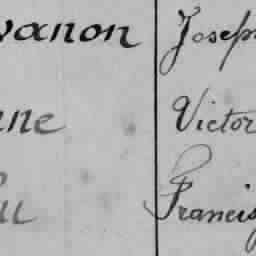 vanon Joseph
une Victor
u Francis